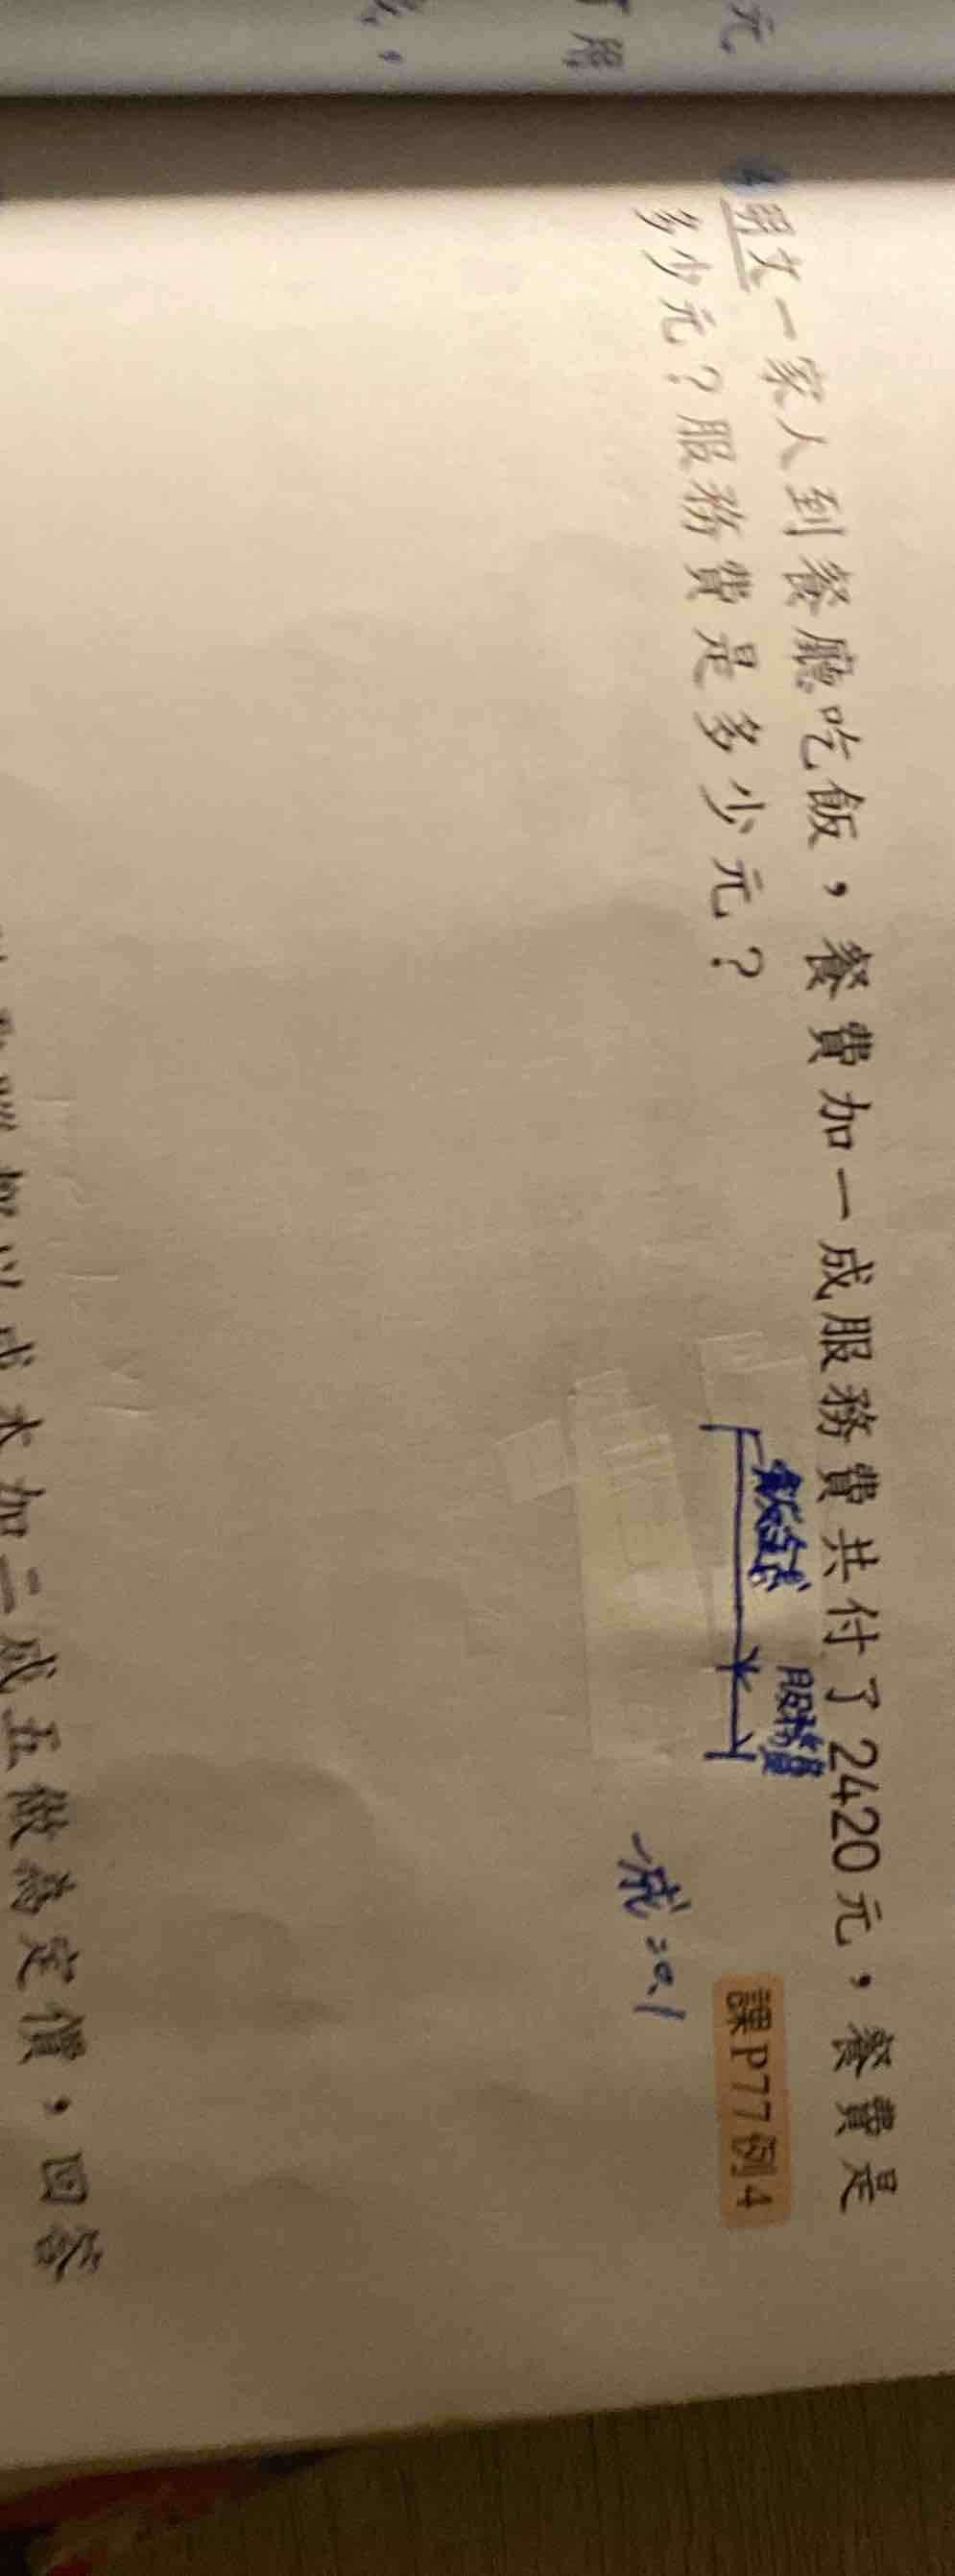 元
男丈一家人到餐廳吃飯，餐費加一成服務費共付了2420元，餐費是
多少元？服務費是多少元？
服務費
課P77例4
一成=0.1
成本加二成五做為定價，回答